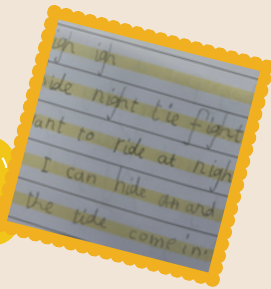 igh igh
ide night tie fight
ant to ride at nigh
I can hide an and
the tide come in